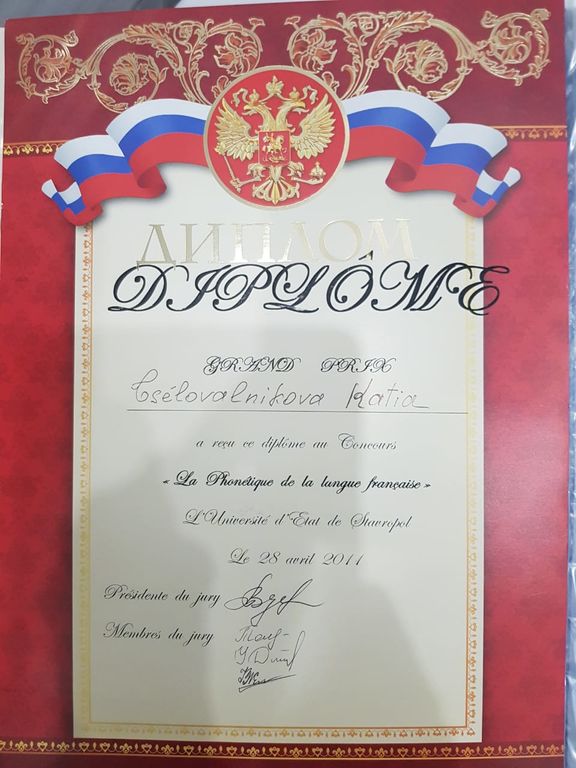 ДИПЛОМ
DIPLÔME
GRAND PRIX
Tsélovalnikova Katia
a reçu ce diplôme au Concours
« La Phonétique de la langue française »
L'Université d'Etat de Stavropol
Le 28 avril 2011
Présidente du jury
Membres du jury